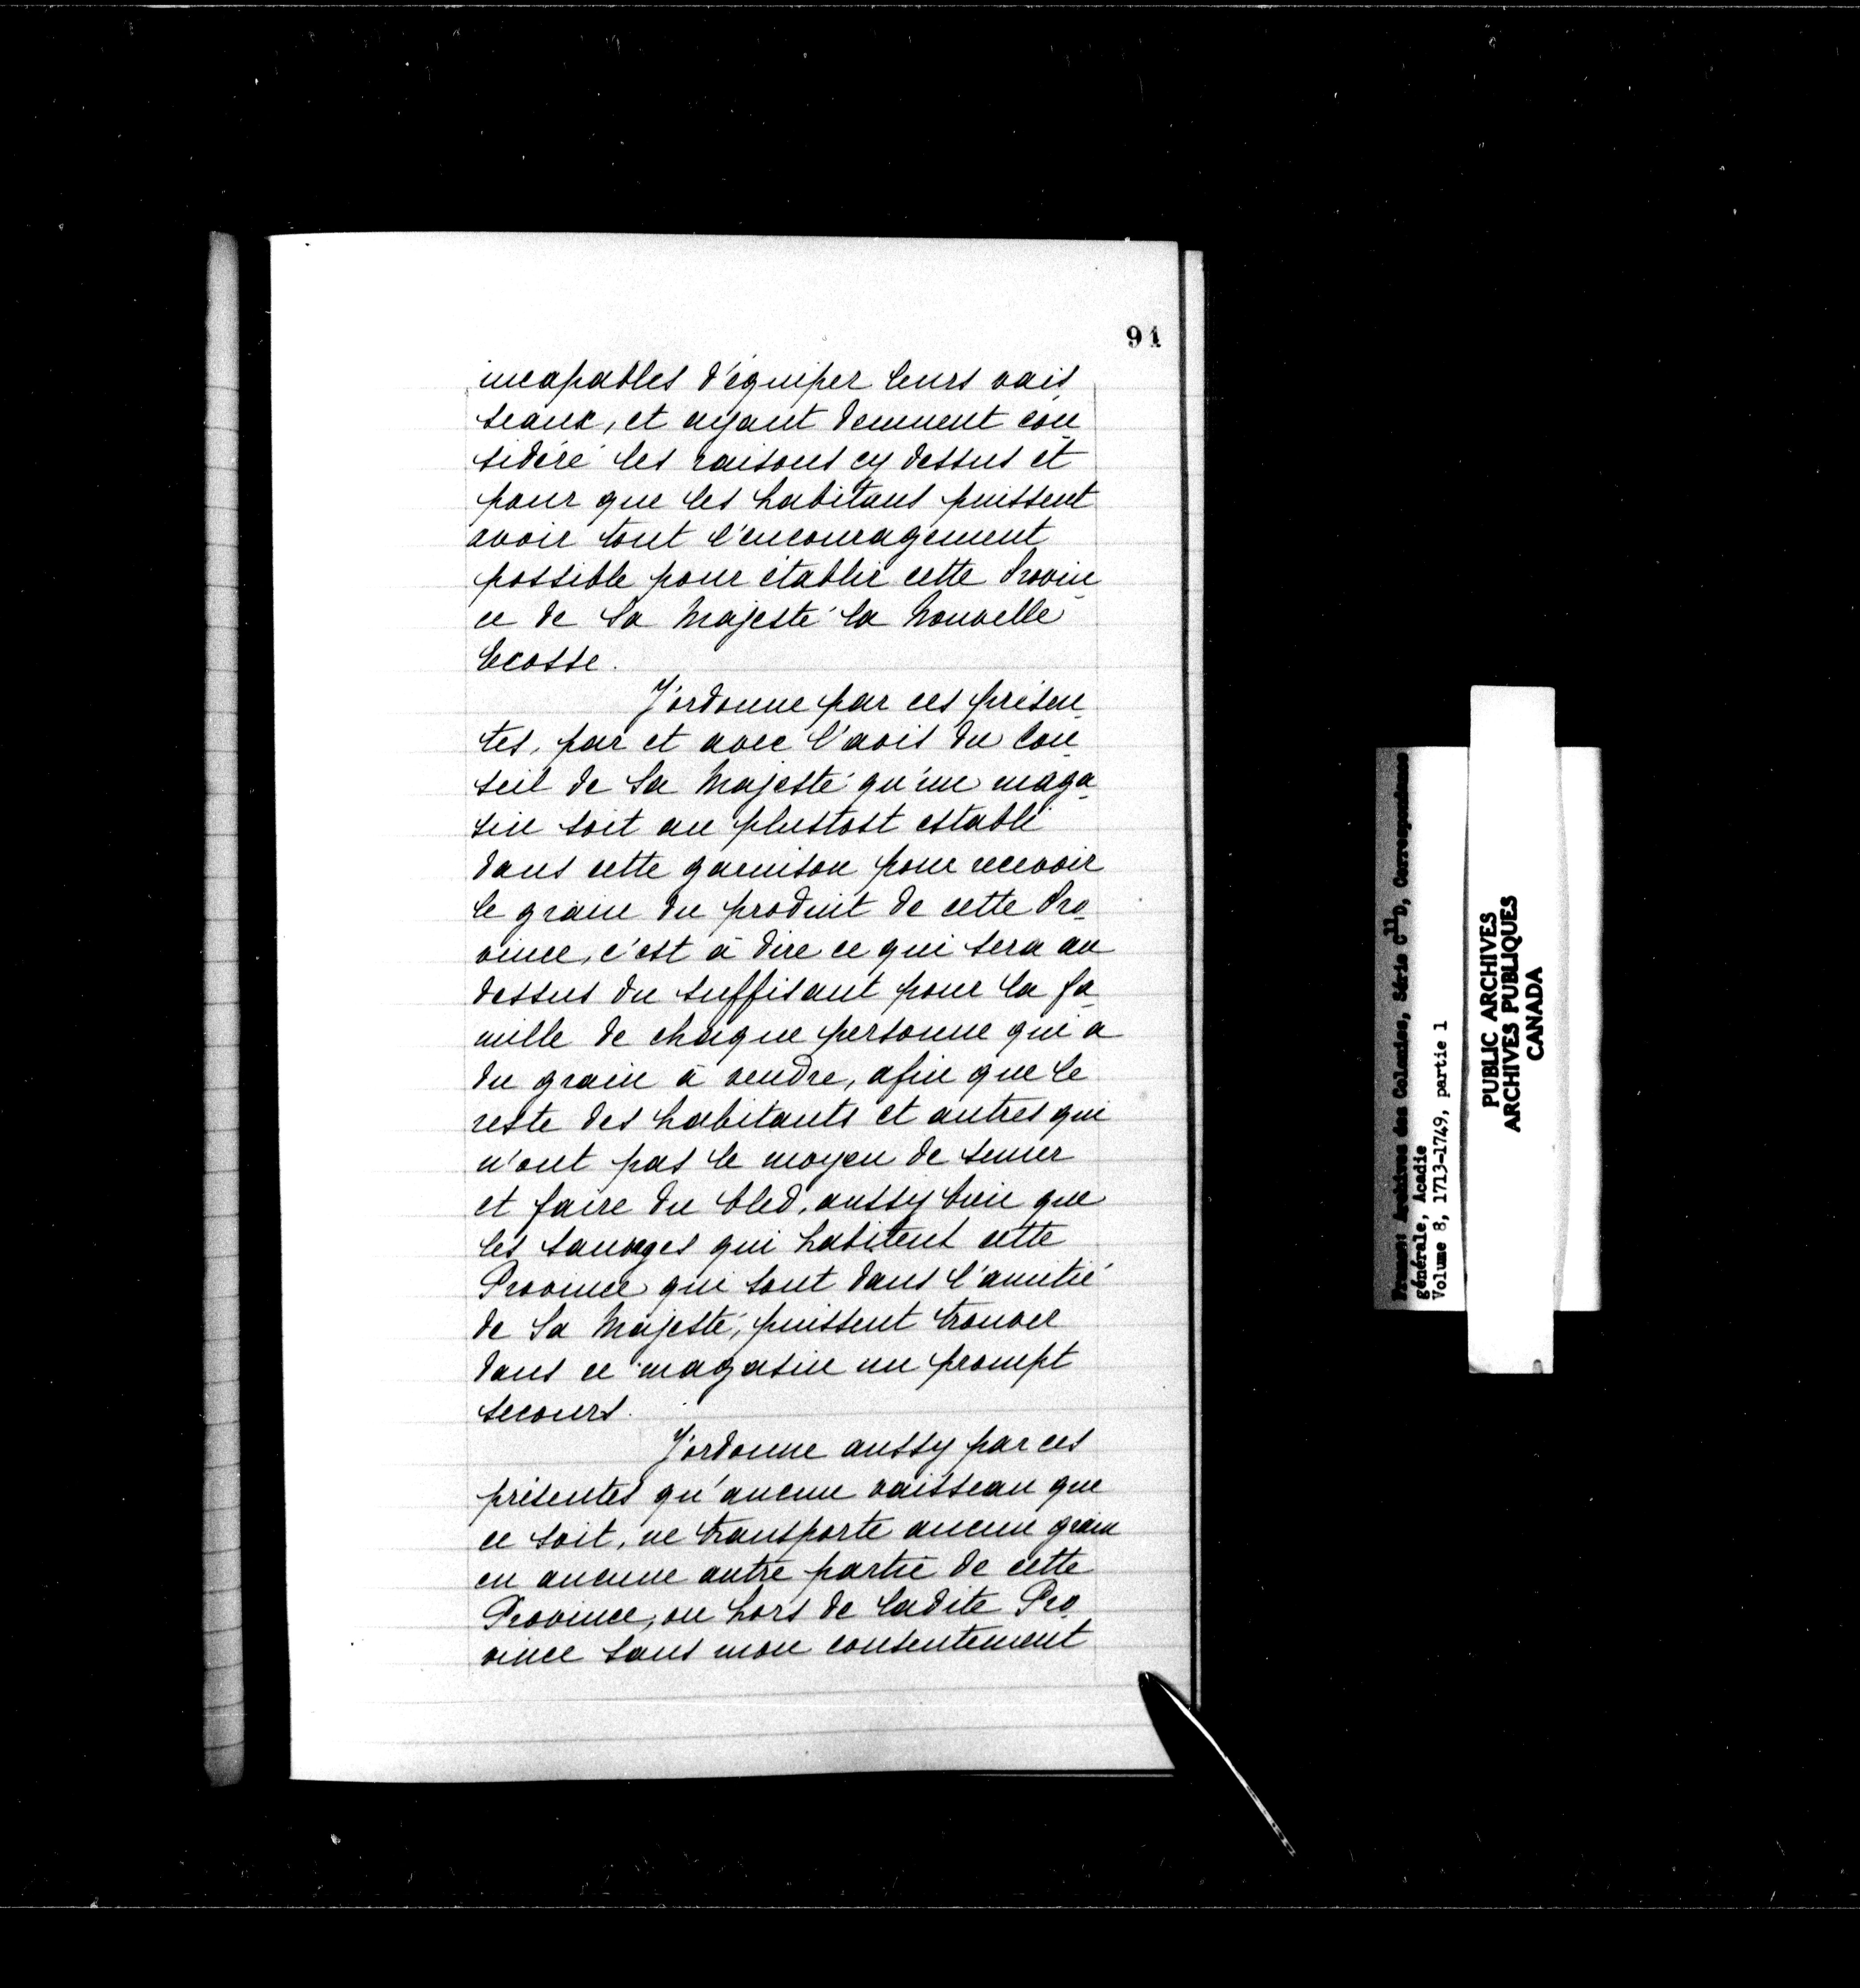 91
incapables d'équiper leurs vais
seaux, et ayant deument con
sidéré les raisons cy dessus et
pour que les habitans puissent
avoir tout l'encouragement
possible pour établir cette Provin
ce de Sa Majesté la Nouvelle
Ecosse.
J'ordonne par ces présen
tes, par et avec l'avis du Con
seil de Sa Majesté qu'un maga
sin soit au plustost establi
dans cette garnison pour recevoir
le grain du produit de cette Pro
vince, c'est à dire ce qui sera au
dessus du suffisant pour la fa
mille de chaque personne qui a
du grain à vendre, afin que le
reste des habitants et autres qui
n'ont pas le moyen de semer
et faire du bled, aussy bien que
les sauvages qui habitent cette
Province qui sont dans l'amitié
de Sa Majesté, puissent trouver
dans ce magasin un prompt
secours.
J'ordonne aussy par ces
présentes qu'aucun vaisseau que
ce soit, ne transporte aucun grain
en aucune autre partie de cette
Province, ou hors de ladite Pro
vince sans mon consentement
France: Archives des Colonies, Série C11D, Correspondance
générale, Acadie
Volume 8, 1713-1749, partie 1
PUBLIC ARCHIVES
ARCHIVES PUBLIQUES
CANADA